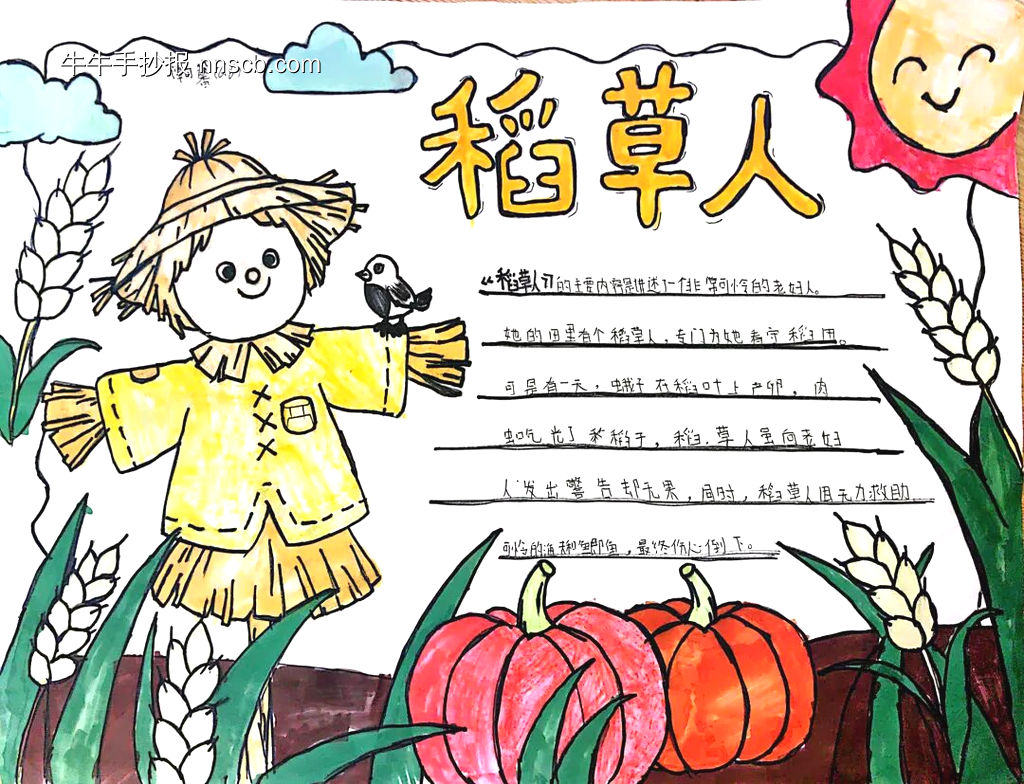 牛牛手抄报 nnscb.com
稻草人
《稻草人》的主要内容是讲述了一个非常可怜的老妇人。
她的田里有个稻草人，专门为她看守稻田。
可是有一天，蛾子在稻叶上产卵，肉
虫吃光了稻子，稻草人虽向老妇
人发出警告却无果，同时，稻草人因无力救助
可怜的渔妇和鲫鱼，最终伤心倒下。